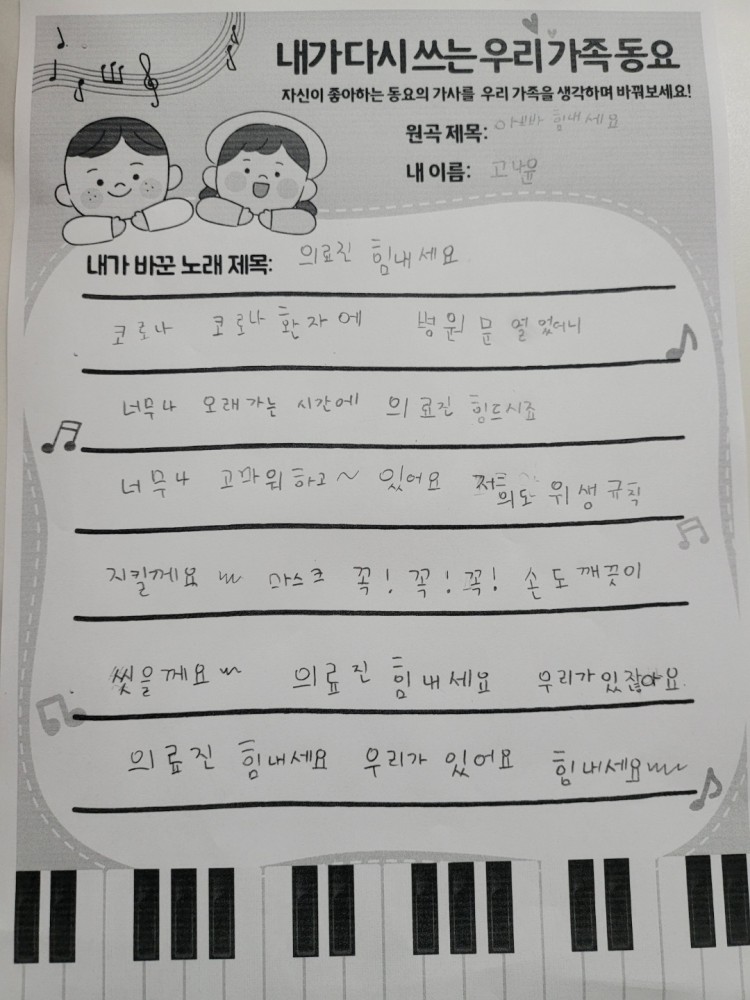 내가 다시 쓰는 우리 가족 동요
자신이 좋아하는 동요의 가사를 우리 가족을 생각하며 바꿔보세요!
원곡 제목: 아빠 힘내세요
내 이름: 고나윤
내가 바꾼 노래 제목: 의료진 힘내세요
코로나 코로나 환자에 병원 문 열었더니
너무나 오래 가는 시간에 의료진 힘드시죠
너무나 고마워하고~ 있어요 저희도 위생 규칙
지킬께요 ~~ 마스크 꼭! 꼭! 꼭! 손도 깨끗이
씻을께요~~ 의료진 힘내세요 우리가 있잖아요
의료진 힘내세요 우리가 있어요 힘내세요~~~